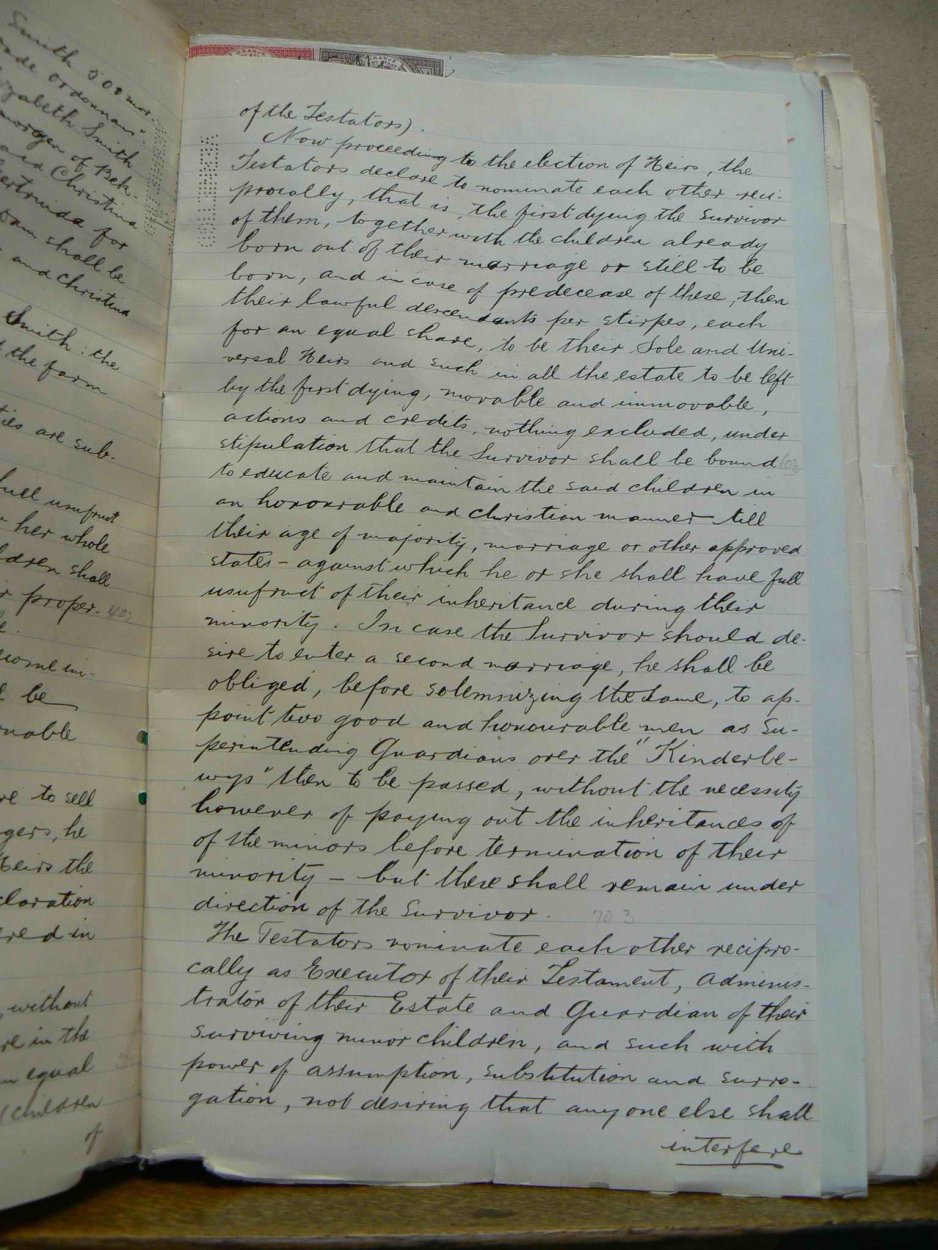 Smith 500 mor
Elizabeth Smith
morgen of Bek-
and Christina
Gertruida for
shall be
and Christina
Smith: the
the farm
ties are sub-
full usufruct
her whole
children shall
proper- 402
come in-
be
re to sell
gers, he
Heirs the
claration
ered in
without
re in the
equal
(children
of
ORANGE
ORANGE
of the Testators).
Now proceeding to the election of Heirs, the
Testators declare to nominate each other reci-
procally, that is, the first dying the Survivor
of them, together with the children already
born out of their marriage or still to be
born, and in case of predecease of these, then
their lawful descendants per stirpes, each
for an equal share, to be their Sole and Uni-
versal Heirs and such in all the estate to be left
by the first dying, movable and immovable,
actions and credits, nothing excluded, under
stipulation that the Survivor shall be bound
to educate and maintain the said children in
an honourable and christian manner till
their age of majority, marriage or other approved
states - against which he or she shall have full
usufruct of their inheritance during their
minority. In case the Survivor should de-
sire to enter a second marriage, he shall be
obliged, before solemnizing the same, to ap-
point two good and honourable men as Su-
perintending Guardians over the "Kinderbe-
wys" then to be passed, without the necessity
however of paying out the inheritances of
of the minors before termination of their
minority - but these shall remain under
direction of the Survivor. 703
The Testators nominate each other recipro-
cally as Executor of their Testament, Adminis-
trator of their Estate and Guardian of their
surviving minor children, and such with
power of assumption, substitution and surro-
gation, not desiring that anyone else shall
interfere